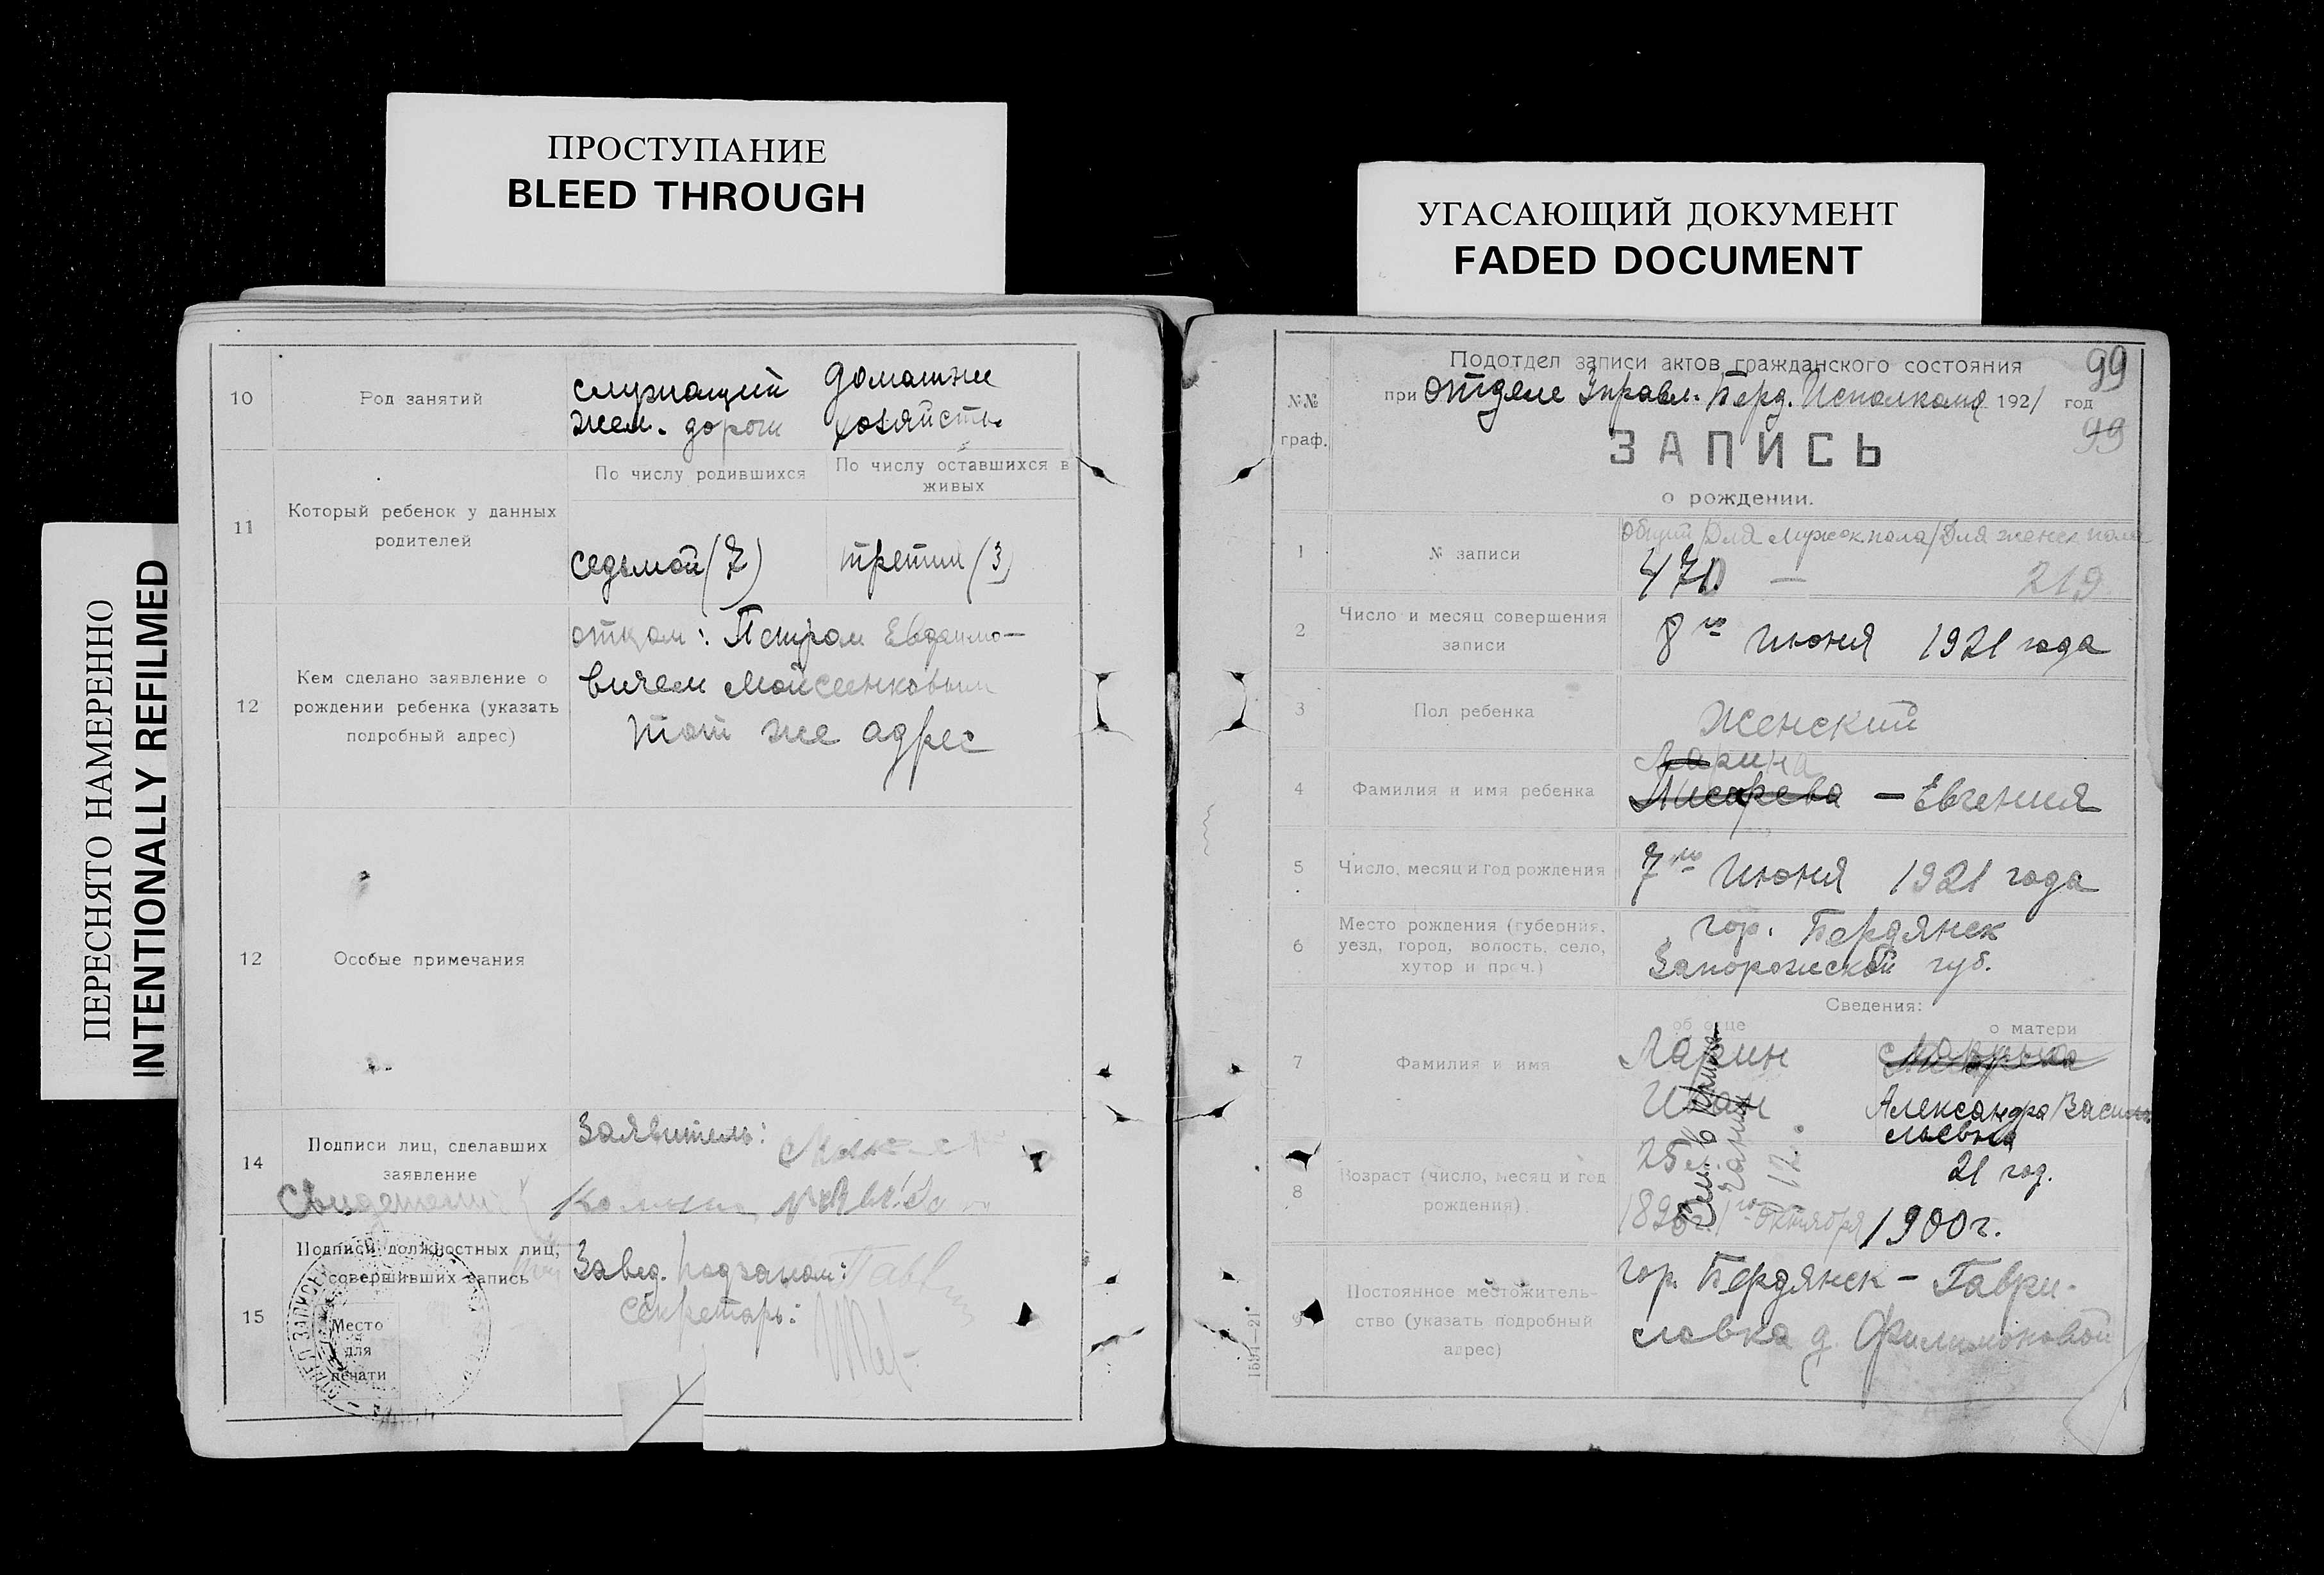 ПРОСТУПАНИЕ
BLEED THROUGH
УГАСАЮЩИЙ ДОКУМЕНТ
FADED DOCUMENT
ПЕРЕСНЯТО НАМЕРЕННО
INTENTIONALLY REFILMED
10
Род занятий
служащий
жел. дороги
домашнее
хозяйство
11
Который ребенок у данных
родителей
По числу родившихся
По числу оставшихся в
живых
седьмой (7)
третий (3)
12
Кем сделано заявление о
рождении ребенка (указать
подробный адрес)
отцом: Петром Евдокимо-
вичем Мойсеенковым
тот же адрес
12
Особые примечания
14
Подписи лиц, сделавших
заявление
Заявитель:
Свидетели:
15
Подписи должностных лиц,
совершивших запись
Место
для
печати
Завед.
Секретарь:
99
Подотдел записи актов гражданского состояния
при отделе Управл. Берд. Исполкома 1921 год
99
№№
граф.
ЗАПИСЬ
о рождении.
1
№ записи
Общий / Для мужск. пола / Для женск. пола
471 — 219
2
Число и месяц совершения
записи
8го Июня 1921 года
3
Пол ребенка
Женский
4
Фамилия и имя ребенка
Ларина
Писарева — Евгения
5
Число, месяц и год рождения
7го Июня 1921 года
6
Место рождения (губерния,
уезд, город, волость, село,
хутор и проч.)
гор. Бердянск
Запорожской губ.
Сведения:
об отце
о матери
7
Фамилия и имя
Ларин
Иван
Александра Васи
льевна
8
Возраст (число, месяц и год
рождения)
25 л.
октября
21 год.
1900 г.
9
Постоянное местожитель-
ство (указать подробный
адрес)
гор. Бердянск — Гаври-
ловка д. Филимоновой
1591—21